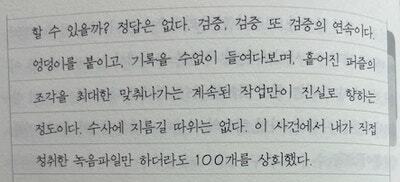 할 수 있을까? 정답은 없다. 검증, 검증 또 검증의 연속이다.
엉덩이를 붙이고, 기록을 수없이 들여다보며, 흩어진 퍼즐의
조각을 최대한 맞춰나가는 계속된 작업만이 진실로 향하는
정도이다. 수사에 지름길 따위는 없다. 이 사건에서 내가 직접
청취한 녹음파일만 하더라도 100개를 상회했다.